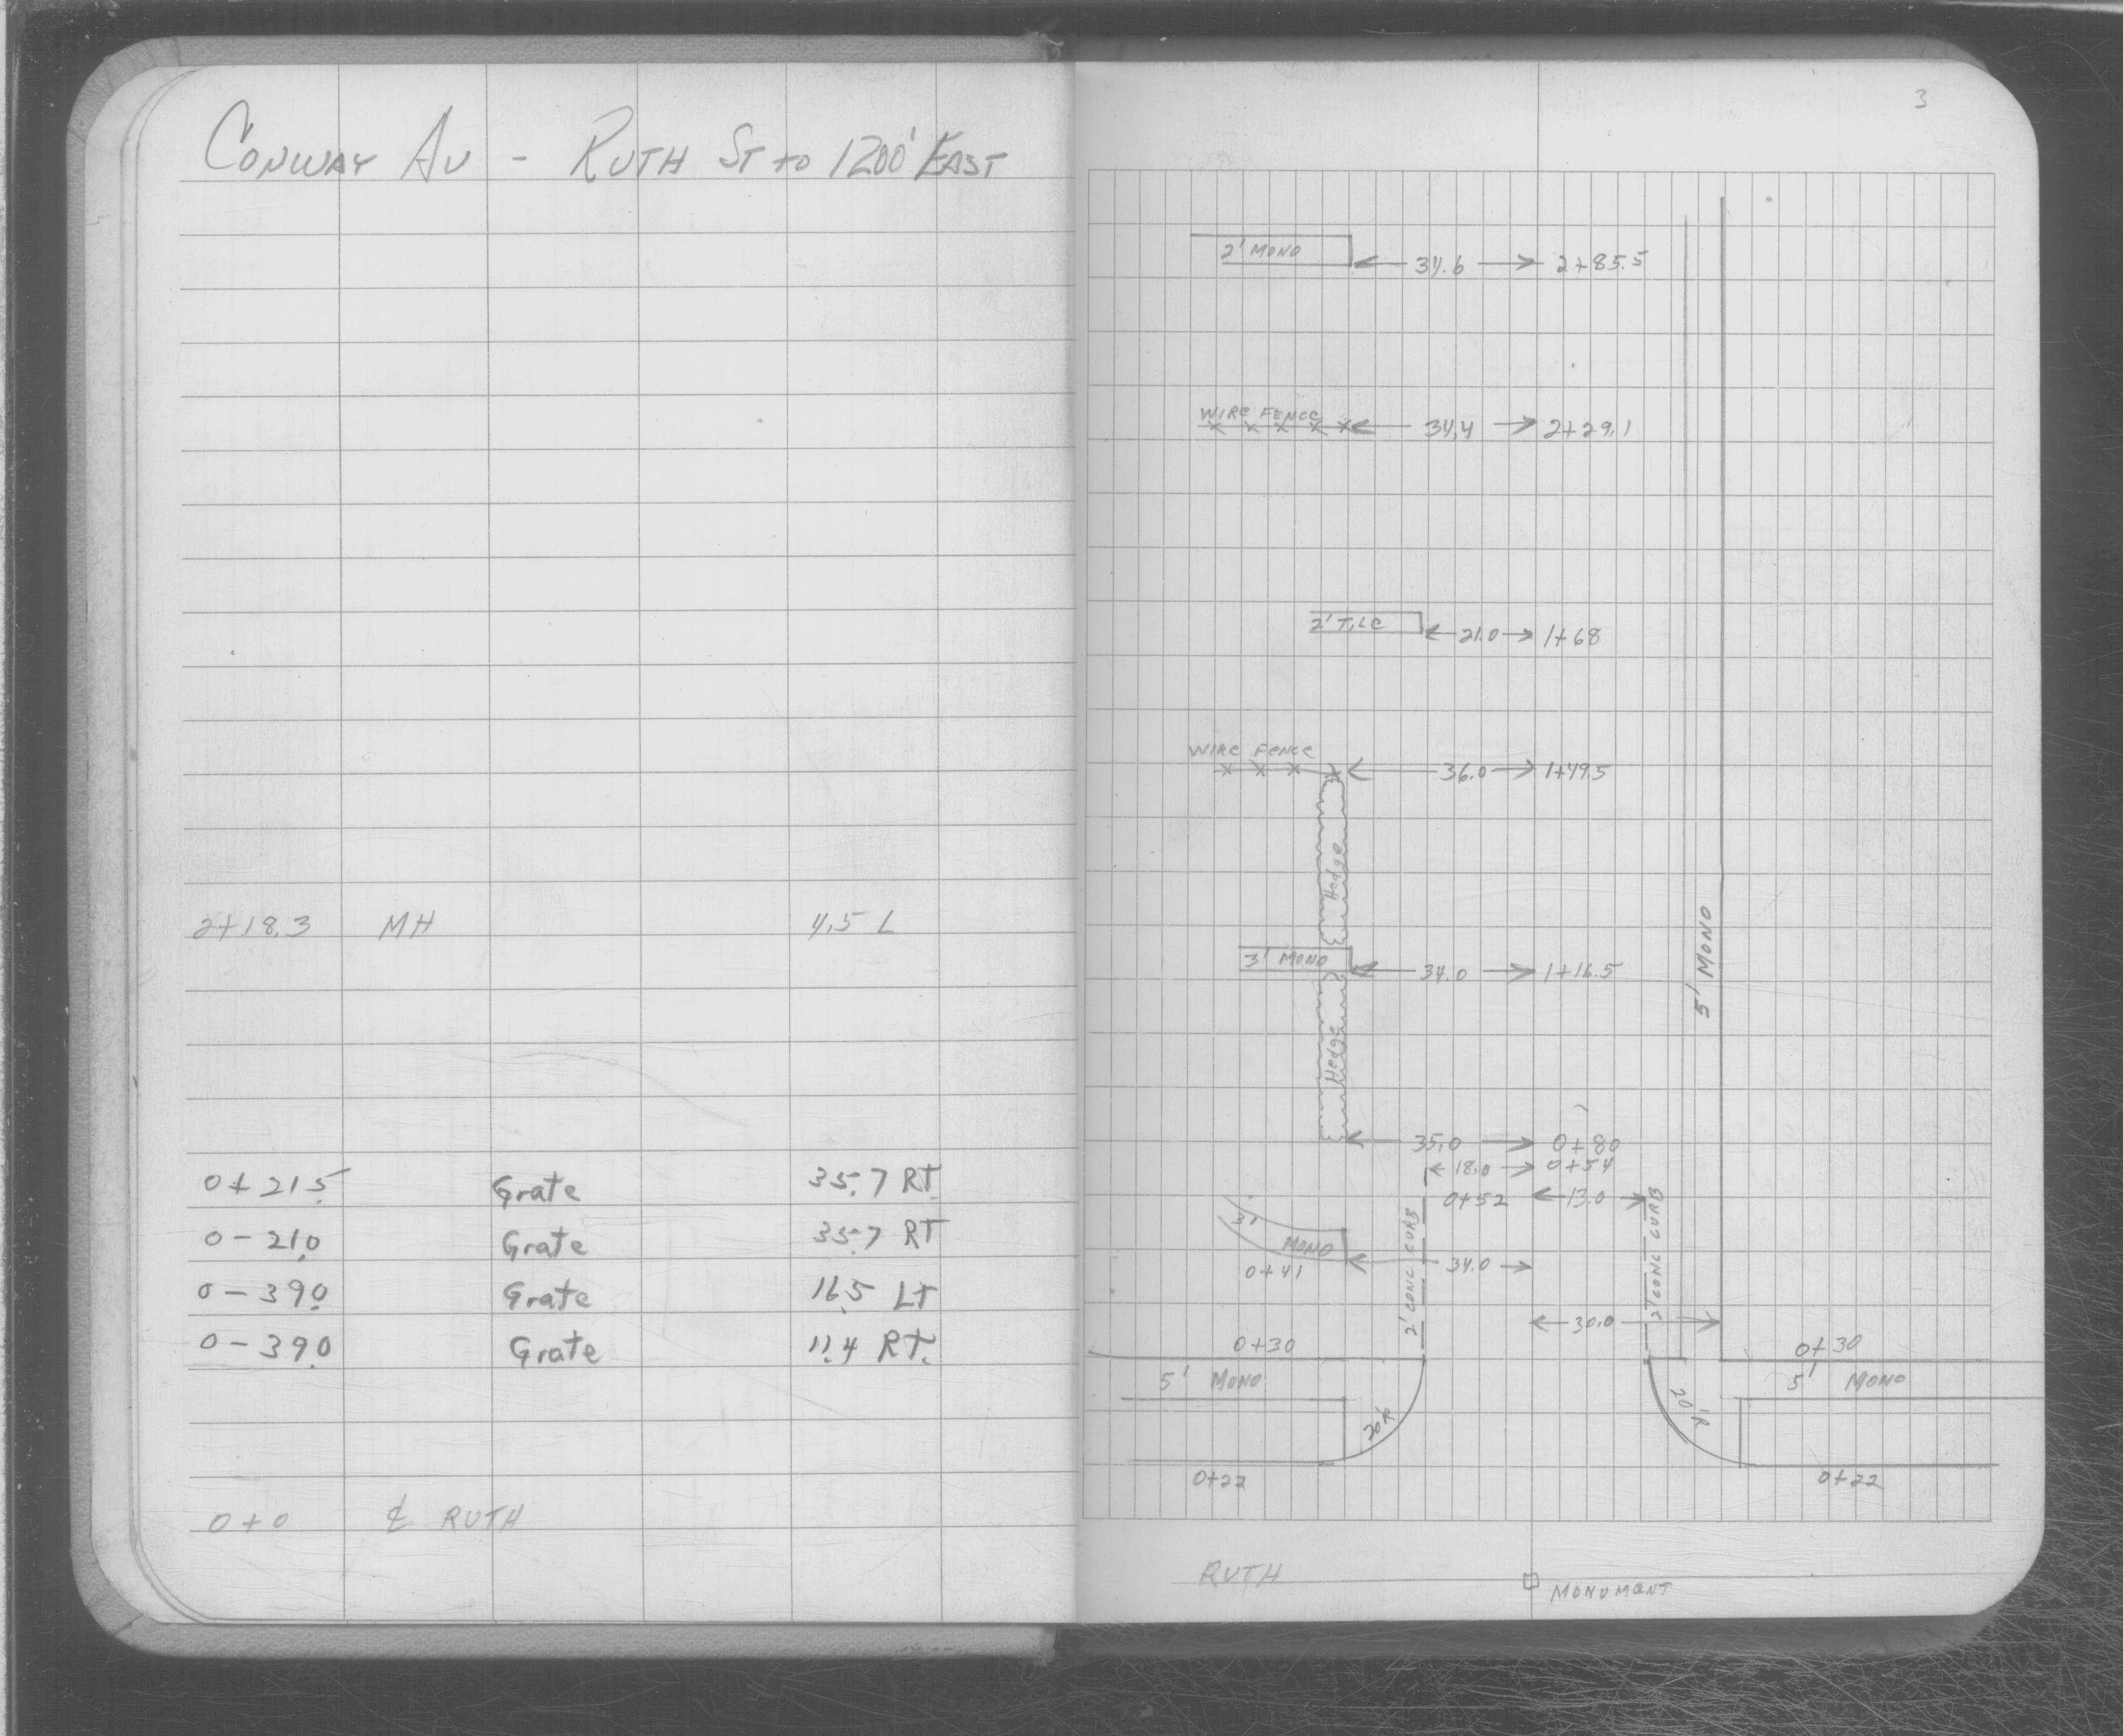 CONWAY AV - RUTH ST TO 1200' EAST
2+18.3 MH 4.5 L
0+21.5 Grate 35.7 RT
0-21.0 Grate 35.7 RT
0-39.0 Grate 16.5 LT
0-39.0 Grate 11.4 RT.
0+0 ℄ RUTH
3
2' MONO 34.6 2+85.5
WIRE FENCE
34.4 2+29.1
2' TILE 21.0 1+68
WIRE FENCE
36.0 1+49.5
Hedge
3' MONO 34.0 1+16.5
5' MONO
Hedge
35.0 0+80
18.0 0+54
0+52 13.0
3'
MONO
0+41 34.0
2' CONC CURB
2' CONC CURB
30.0
0+30 0+30
5' MONO 5' MONO
20'R 20'R
0+22 0+22
RUTH
MONUMENT